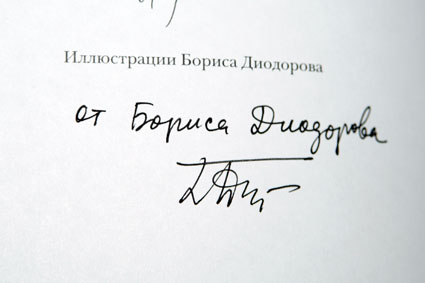 Иллюстрации Бориса Диодорова
от Бориса Диодорова